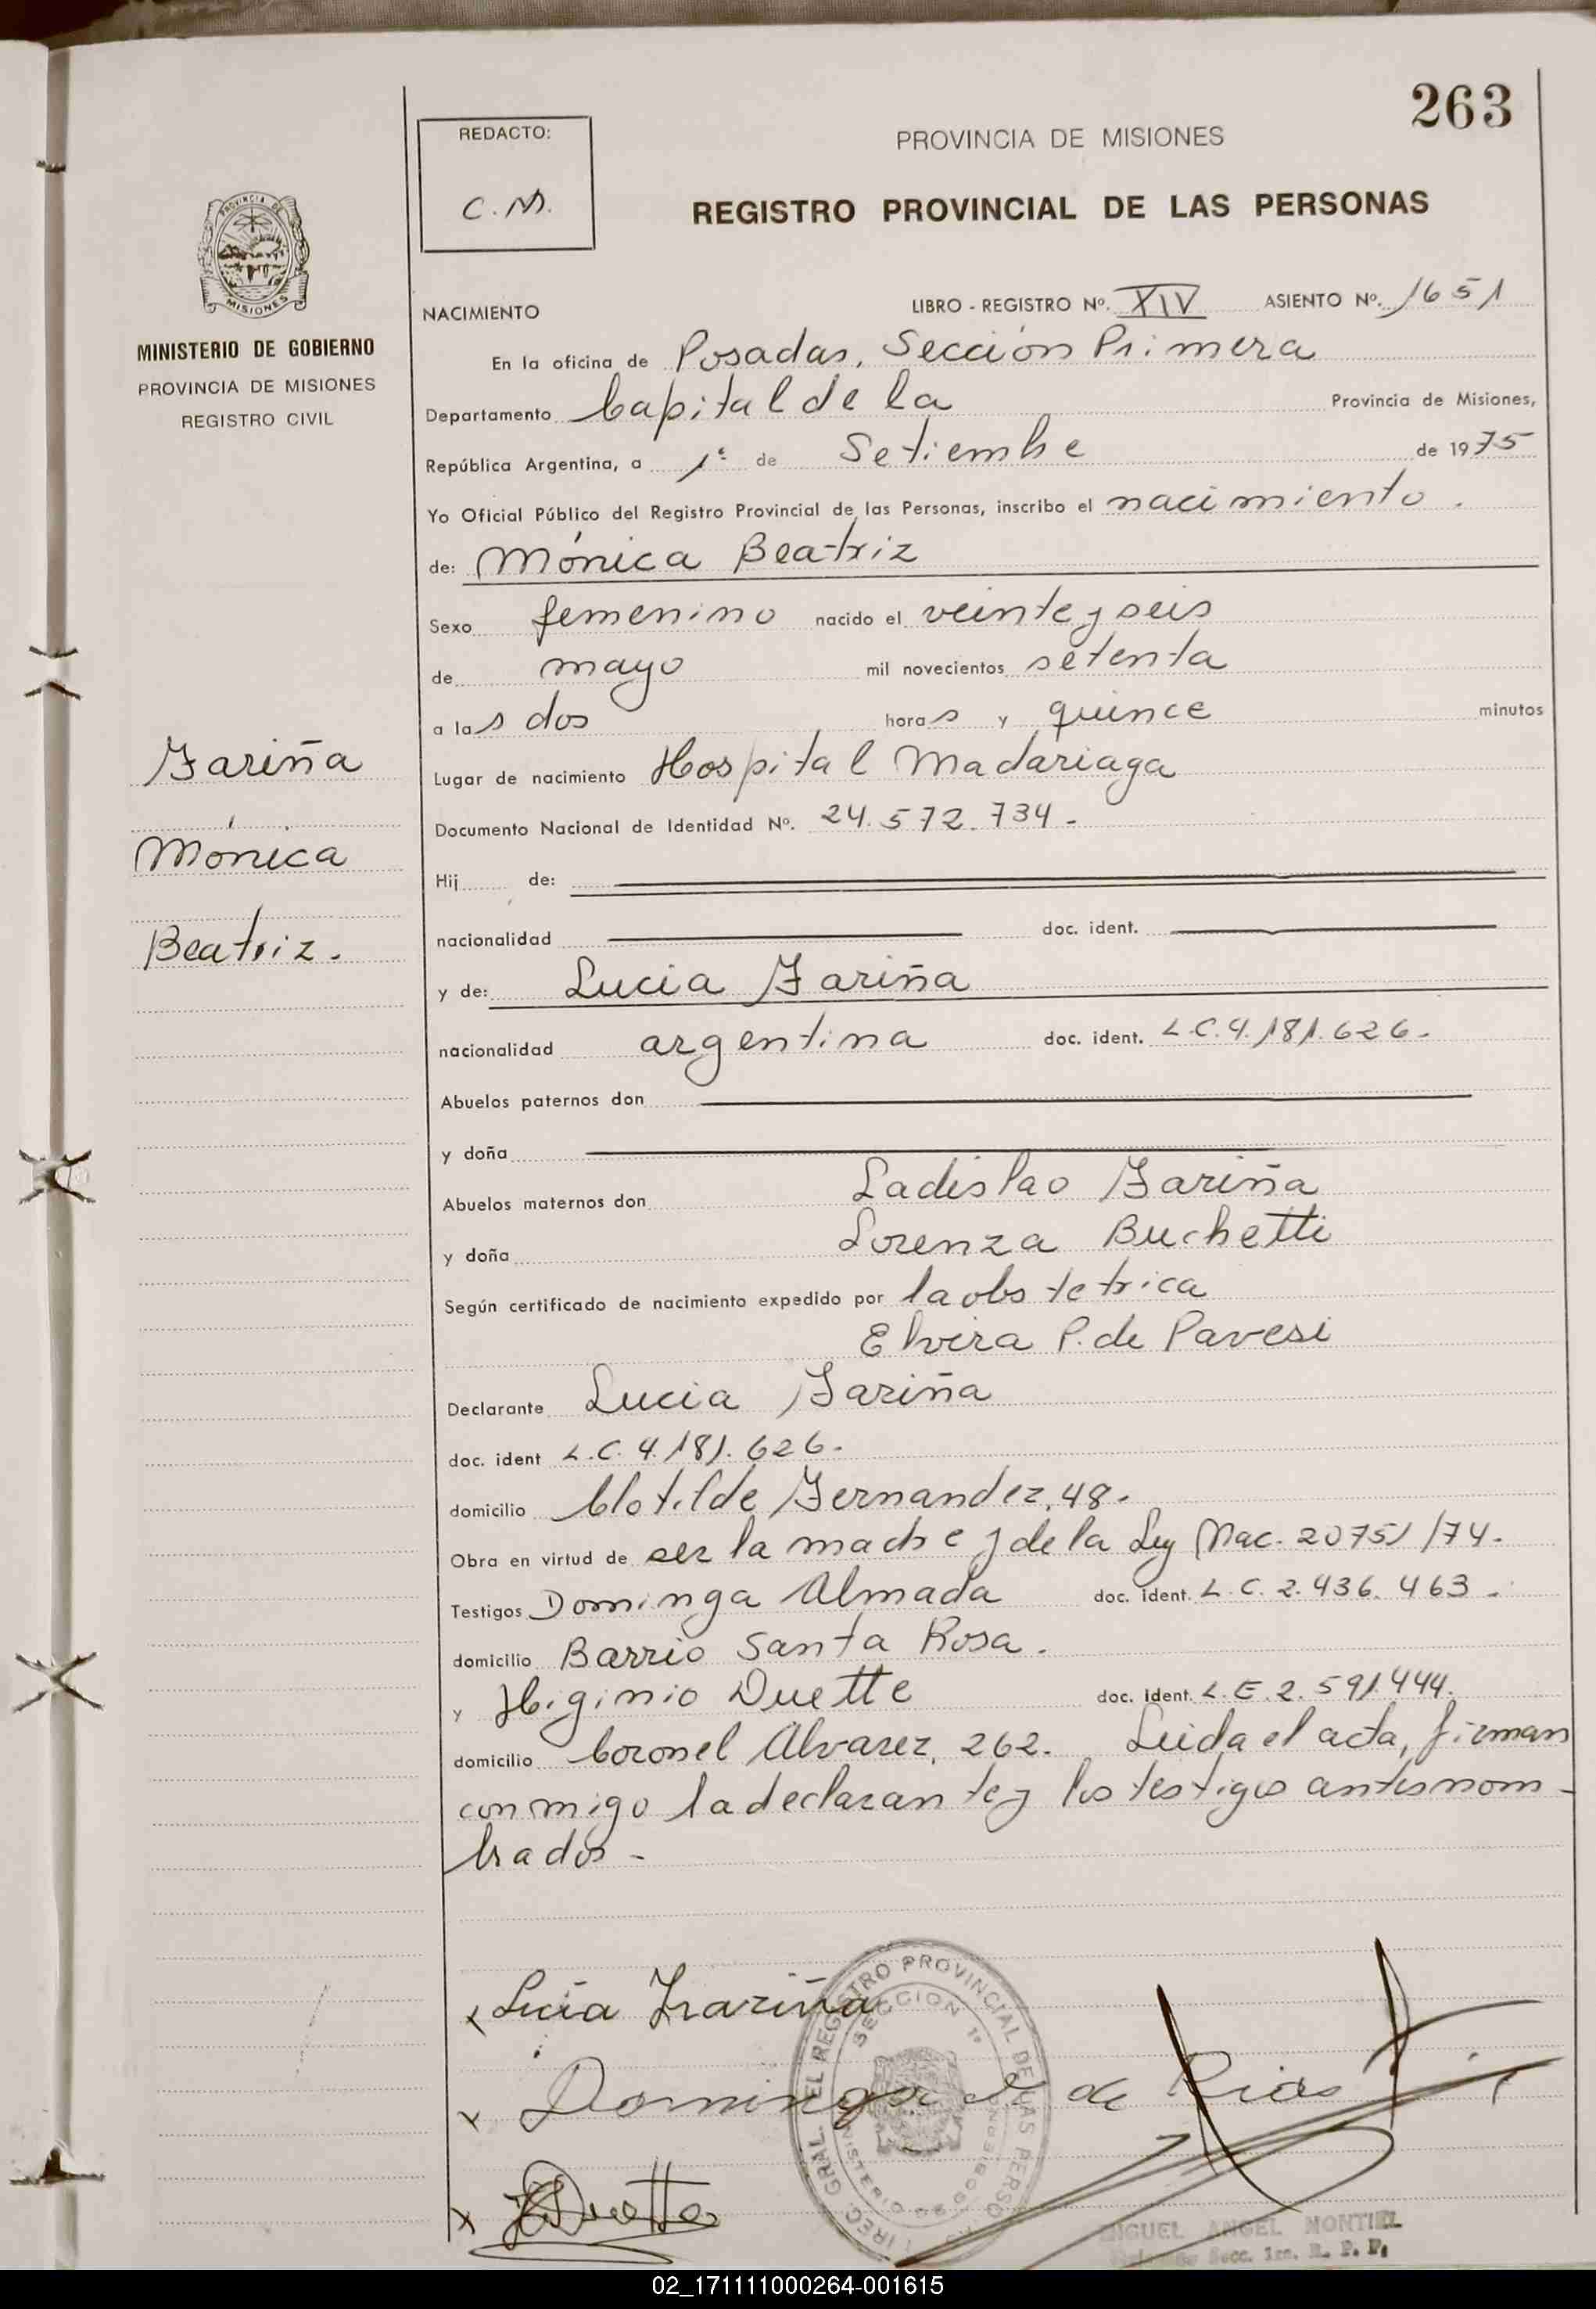 263
REDACTO:
C.M.
PROVINCIA DE MISIONES
REGISTRO PROVINCIAL DE LAS PERSONAS
PROVINCIA DE
MISIONES
MINISTERIO DE GOBIERNO
PROVINCIA DE MISIONES
REGISTRO CIVIL
NACIMIENTO LIBRO - REGISTRO Nº. XIV ASIENTO Nº. 1651
En la oficina de Posadas, Sección Primera
Departamento Capital de la Provincia de Misiones,
República Argentina, a 1º de Setiembre de 1975
Yo Oficial Público del Registro Provincial de las Personas, inscribo el nacimiento.
de: Mónica Beatriz
Sexo femenino nacido el veinte y seis
de mayo mil novecientos setenta
a las dos horas y quince minutos
Fariña
Mónica
Beatriz.
Lugar de nacimiento Hospital Madariaga
Documento Nacional de Identidad Nº. 24.572.734-
Hij de:
nacionalidad doc. ident.
y de: Lucia Fariña
nacionalidad argentina doc. ident. L.C.4.181.626-
Abuelos paternos don
y doña
Abuelos maternos don Ladislao Fariña
y doña Lorenza Buchetti
Según certificado de nacimiento expedido por la obstetrica
Elvira P. de Pavesi
Declarante Lucia Fariña
doc. ident L.C. 4.181.626-
domicilio Clotilde Fernandez, 48-
Obra en virtud de ser la madre y de la Ley Nac. 20751/74.
Testigos Dominga Almada doc. ident. L.C. 2.436.463-
domicilio Barrio Santa Rosa.
y Higinio Duette doc. ident. L.E. 2.591.444.
domicilio Coronel Alvarez, 262. Leida el acta, firman
conmigo la declarante y los testigos antesnom-
brados-
x Lucía Fariña
x Dominga A de Rios
x HDuette
DIREC. GRAL. DEL REGISTRO PROVINCIAL DE LAS PERSONAS
SECCION 1ª
MINISTERIO DE GOBIERNO
MIGUEL ANGEL MONTIEL
Secc. 1ra. R. P. P.
02_171111000264-001615